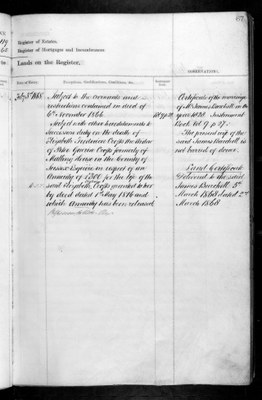 Register of Estates,
Register of Mortgages and Incumbrances.
Lands on the Register,
Date of Entry.
Exceptions, Qualifications, Conditions, &c.
OBSERVATIONS.
July 3rd 1868
Subject to the covenants and
restrictions contained in deed of
6th November 1866
Subject with other hereditaments to
Succession duty on the death of
Elizabeth Frederica Crofts the Sister
of Peter George Crofts formerly of
Malling House in the County of
Sussex Esquire in respect of an
Annuity of £300 for the life of the
said Elizabeth Crofts granted to her
by deed dated 1st May 1816 and
which Annuity has been released
Certificate of the marriage
of Mr James Burchell in the
year 1828. Instrument
Book Vol 9 p 27.
The present wife of the
said James Burchell is
not barred of dower.
Land Certificate
Delivered to the said
James Burchell 5th
March 1868 dated 2nd
March 1868